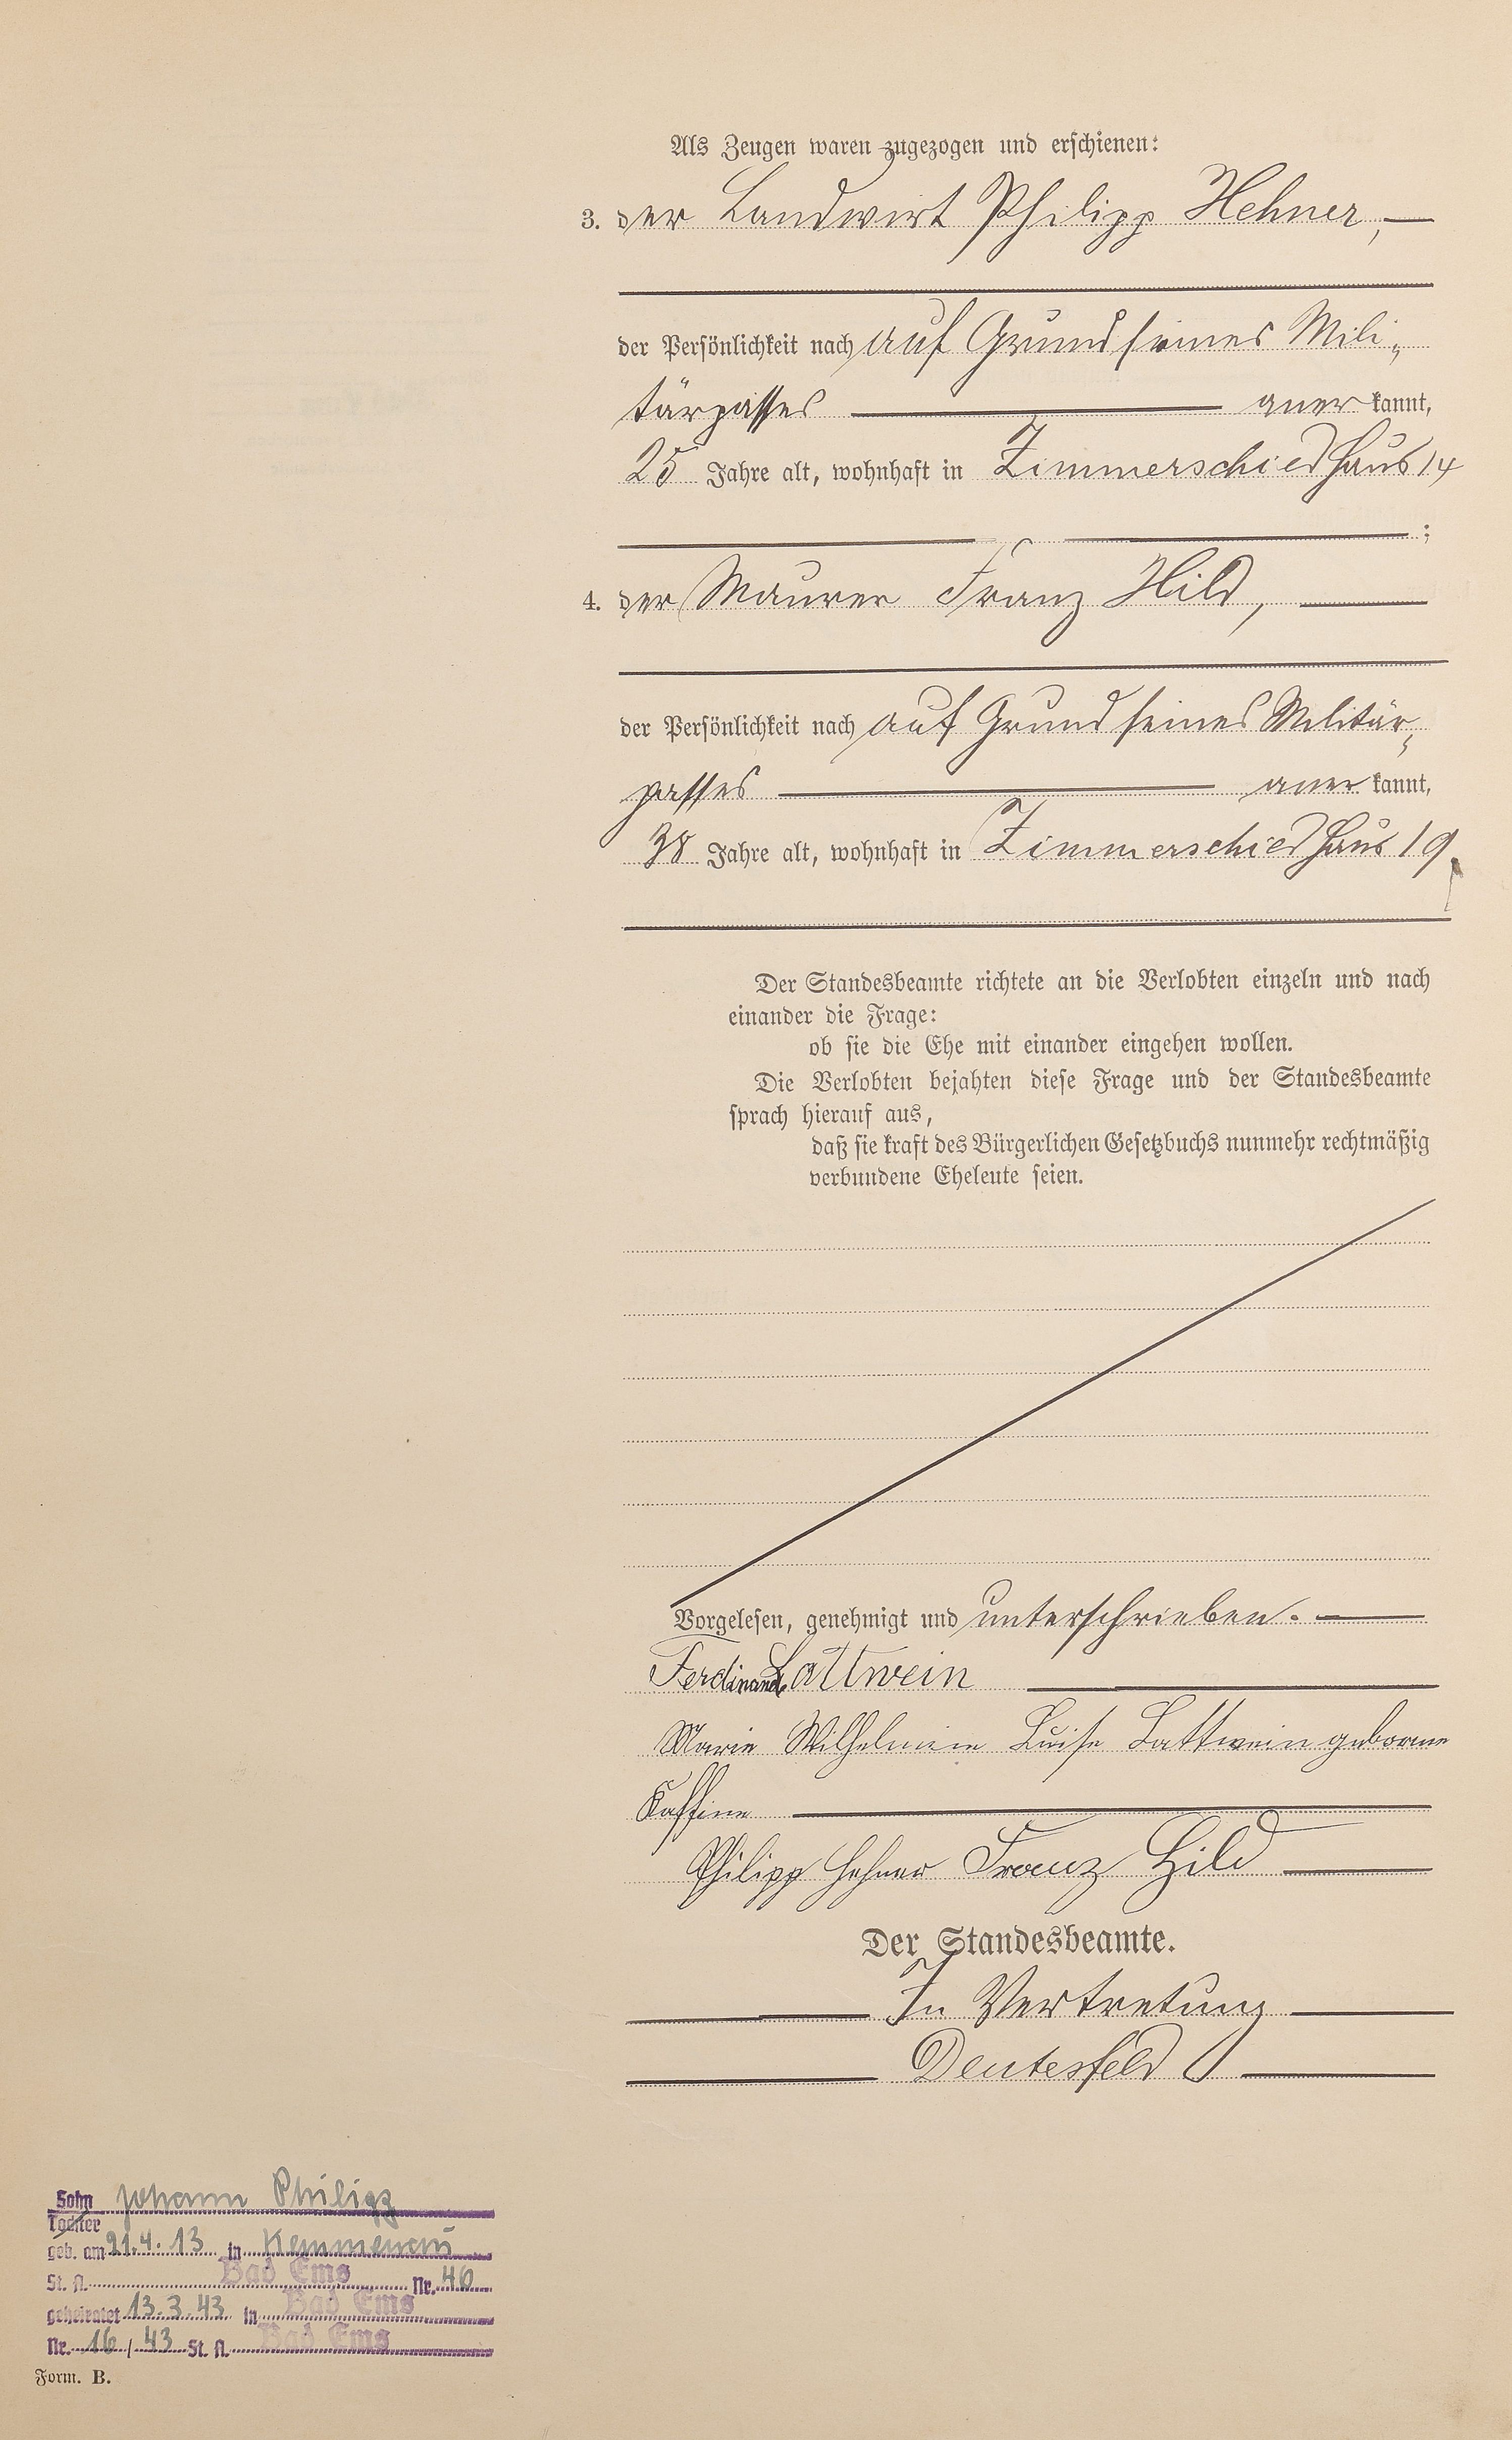 Als Zeugen waren zugezogen und erschienen:
3. der Landwirt Philipp Hehner,
der Persönlichkeit nach auf Grund seines Mili-
tärpasses anerkannt,
25 Jahre alt, wohnhaft in Zimmerschied Haus 14
;
4. der Maurer Franz Hild,
der Persönlichkeit nach auf Grund seines Militär-
passes anerkannt,
38 Jahre alt, wohnhaft in Zimmerschied Haus 19.
Der Standesbeamte richtete an die Verlobten einzeln und nach
einander die Frage:
ob sie die Ehe mit einander eingehen wollen.
Die Verlobten bejahten diese Frage und der Standesbeamte
sprach hierauf aus,
daß sie kraft des Bürgerlichen Gesetzbuchs nunmehr rechtmäßig
verbundene Eheleute seien.
Vorgelesen, genehmigt und unterschrieben.
Ferdinand Lattwein
Marie Wilhelmine Luise Lattwein geborene
Kaffine
Philipp Hehner Franz Hild
Der Standesbeamte.
In Vertretung
Deutesfeld
Sohn Johann Philipp
Tochter
geb. am 21.4.13 in Kemmenau
St. A. Bad Ems Nr. 46
geheiratet 13.3.43 in Bad Ems
Nr. 16/43 St. A. Bad Ems
Form. B.